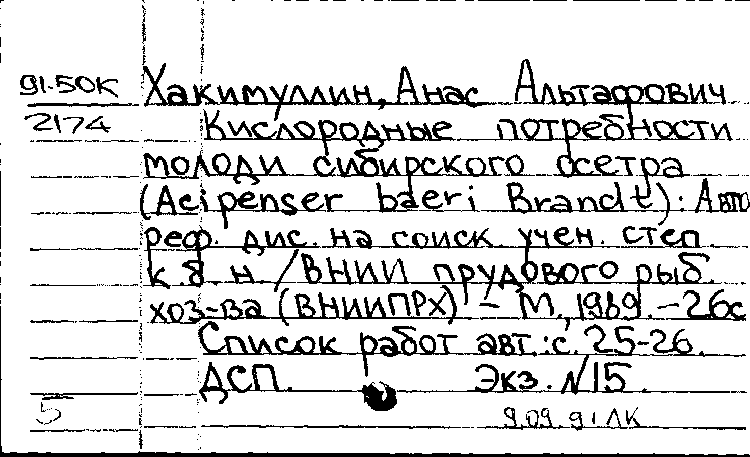 91-50К Хакимуллин, Анас Альтафович
2174 Кислородные потребности
молоди сибирского осетра
(Acipenser baeri Brandt): Авто
реф. дис. на соиск. учен. степ.
к. б. н. / ВНИИ прудового рыб.
хоз-ва (ВНИИПРХ) - М., 1989. - 26с
Список работ авт.: с. 25-26.
ДСП. Экз. №15.
5 9.09.91 ЛК